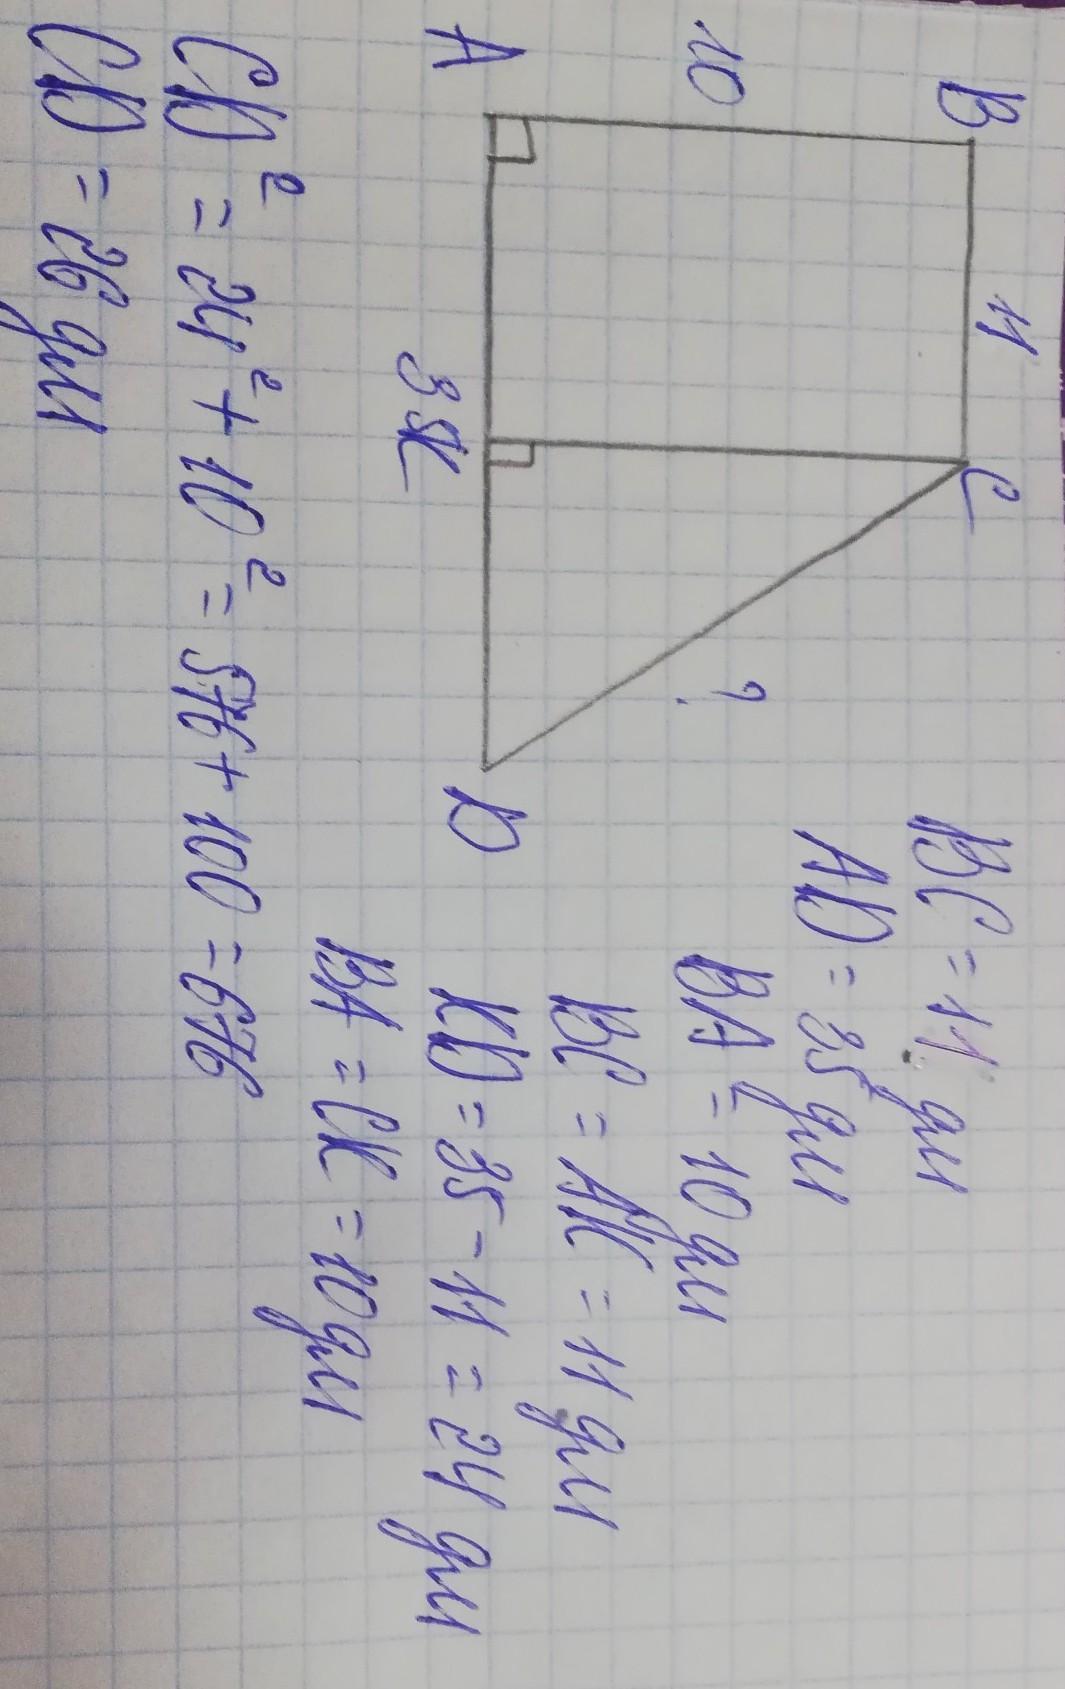 B 11 C
10 ?
A 3 K D
BC = 11 дм
AD = 35 дм
BA = 10 дм
BC = AK = 11 дм
KD = 35 - 11 = 24 дм
BA = CK = 10 дм
CD² = 24² + 10² = 576 + 100 = 676
CD = 26 дм